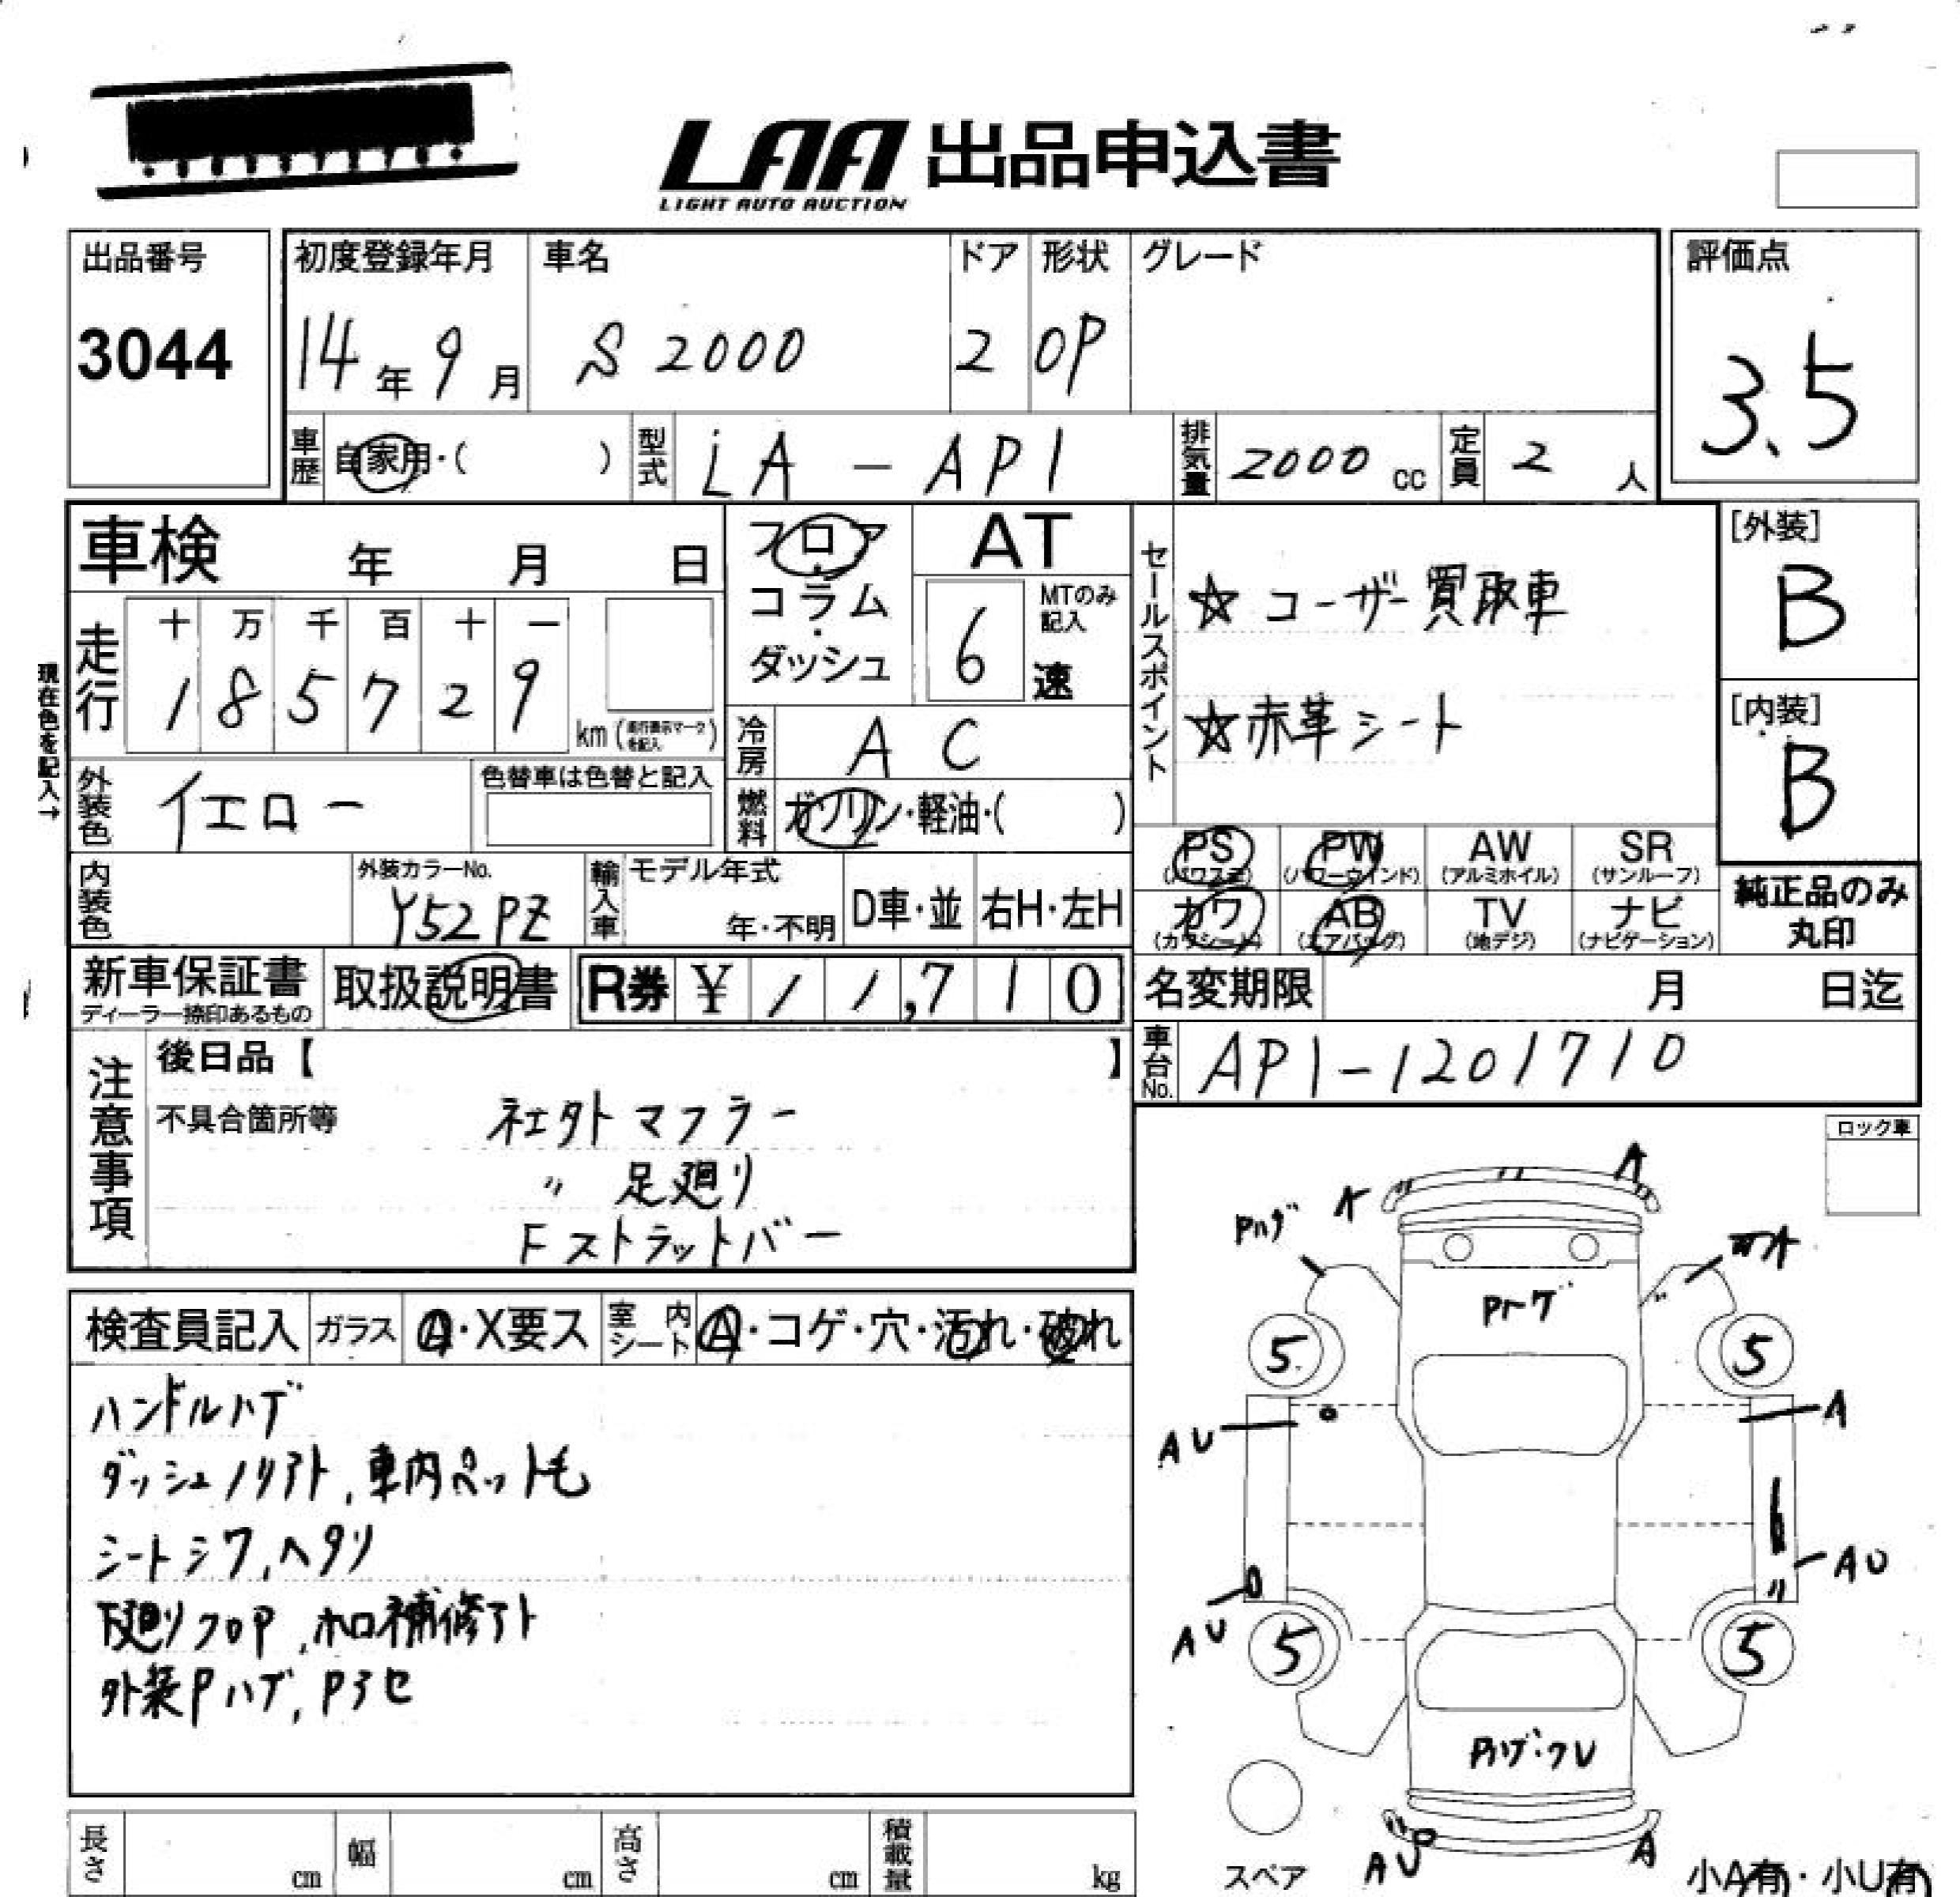 LAA 出品申込書
LIGHT AUTO AUCTION
出品番号
3044
初度登録年月 車名 ドア 形状 グレード
14年 9月 S2000 2 OP
評価点
3.5
車歴 自家用・( ) 型式 LA-AP1 排気量 2000 cc 定員 2 人
車検 年 月 日
走行 十 万 千 百 十 一
1 8 5 7 2 9 km (走行表示マークを記入)
現在色を記入→
外装色 イエロー 色替車は色替と記入
内装色 外装カラーNo. Y52PZ
輸入車 モデル年式 年・不明 D車・並 右H・左H
フロア・コラム・ダッシュ
AT
6速 MTのみ記入
冷房 AC
燃料 ガソリン・軽油・( )
セールスポイント
☆ユーザー買取車
☆赤革シート
[外装]
B
[内装]
B
PS (パワステ) PW (パワーウインド) AW (アルミホイル) SR (サンルーフ)
カワ (カワシート) AB (エアバッグ) TV (地デジ) ナビ (ナビゲーション)
純正品のみ丸印
新車保証書 取扱説明書 R券 ¥ 11,710
ディーラー捺印あるもの
名変期限 月 日迄
車台No. AP1-1201710
注意事項
後日品【 】
不具合箇所等
社外マフラー
〃 足廻り
Fストラットバー
検査員記入 ガラス A・X要ス 室内シート A・コゲ・穴・汚れ・破れ
ハンドルハゲ
ダッシュノリアト, 車内ペットも
シートシワ, ヘタリ
下廻りクロP, ホロ補修アト
外装Pハゲ, Pアセ
ロック車
A
A
Pハゲ
5
5
A
AU
AU
AU
5
5
Pハゲ・クU
AU
A
スペア
小A有・小U有
長さ cm 幅 cm 高さ cm 積載量 kg